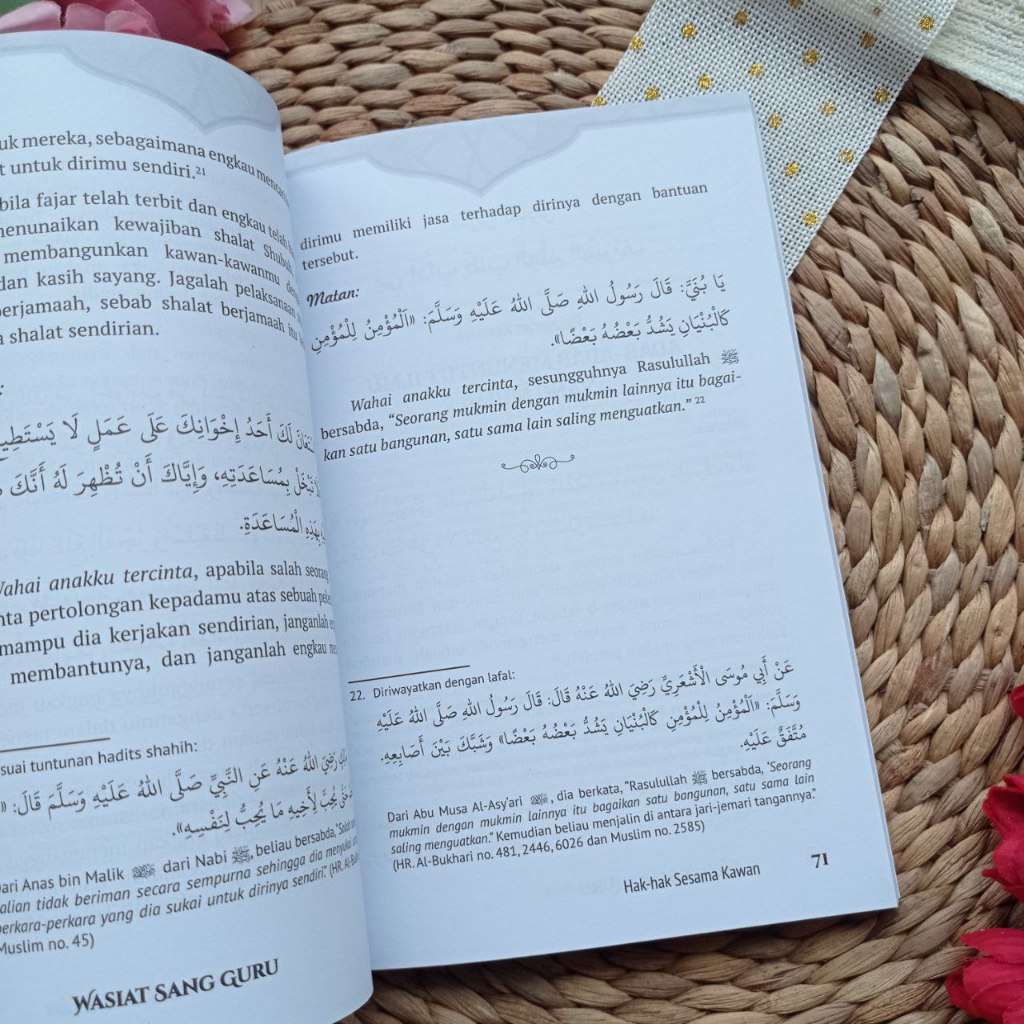 uk mereka, sebagaimana engkau
t untuk dirimu sendiri.21
bila fajar telah terbit dan engkau telah
menunaikan kewajiban shalat Shubuh
membangunkan kawan-kawanmu
dan kasih sayang. Jagalah pelaksanaan
berjamaah, sebab shalat berjamaah
a shalat sendirian.
:
لَكَ أَحَدُ إِخْوَانِكَ عَلَى عَمَلٍ لَا
تَبْخَلْ بِمُسَاعَدَتِهِ، وَإِيَّاكَ أَنْ تُظْهِرَ لَهُ أَنَّكَ
بِهَذِهِ الْمُسَاعَدَةِ.
Wahai anakku tercinta, apabila salah
nta pertolongan kepadamu atas sebuah
mampu dia kerjakan sendirian, janganlah
membantunya, dan janganlah engkau
suai tuntunan hadits shahih:
رَضِيَ اللهُ عَنْهُ عَنِ النَّبِيِّ صَلَّى اللهُ عَلَيْهِ وَسَلَّمَ قَالَ: «
يُحِبَّ لِأَخِيهِ مَا يُحِبُّ لِنَفْسِهِ».
Dari Anas bin Malik dari Nabi ﷺ, beliau bersabda,
alian tidak beriman secara sempurna sehingga dia menyukai
perkara-perkara yang dia sukai untuk dirinya sendiri." (HR.
Muslim no. 45)
WASIAT SANG GURU
dirimu memiliki jasa terhadap dirinya dengan bantuan
tersebut.
Matan:
يَا بُنَيَّ: قَالَ رَسُولُ اللهِ صَلَّى اللهُ عَلَيْهِ وَسَلَّمَ: «اَلْمُؤْمِنُ لِلْمُؤْمِنِ
كَالْبُنْيَانِ يَشُدُّ بَعْضُهُ بَعْضًا».
Wahai anakku tercinta, sesungguhnya Rasulullah ﷺ
bersabda, "Seorang mukmin dengan mukmin lainnya itu bagai-
kan satu bangunan, satu sama lain saling menguatkan." 22
22. Diriwayatkan dengan lafal:
عَنْ أَبِي مُوسَى الْأَشْعَرِيِّ رَضِيَ اللهُ عَنْهُ قَالَ: قَالَ رَسُولُ اللهِ صَلَّى اللهُ عَلَيْهِ
وَسَلَّمَ: «اَلْمُؤْمِنُ لِلْمُؤْمِنِ كَالْبُنْيَانِ يَشُدُّ بَعْضُهُ بَعْضًا» وَشَبَّكَ بَيْنَ أَصَابِعِهِ.
مُتَّفَقٌ عَلَيْهِ.
Dari Abu Musa Al-Asy'ari , dia berkata, "Rasulullah ﷺ bersabda, 'Seorang
mukmin dengan mukmin lainnya itu bagaikan satu bangunan, satu sama lain
saling menguatkan.' Kemudian beliau menjalin di antara jari-jemari tangannya."
(HR. Al-Bukhari no. 481, 2446, 6026 dan Muslim no. 2585)
Hak-hak Sesama Kawan 71